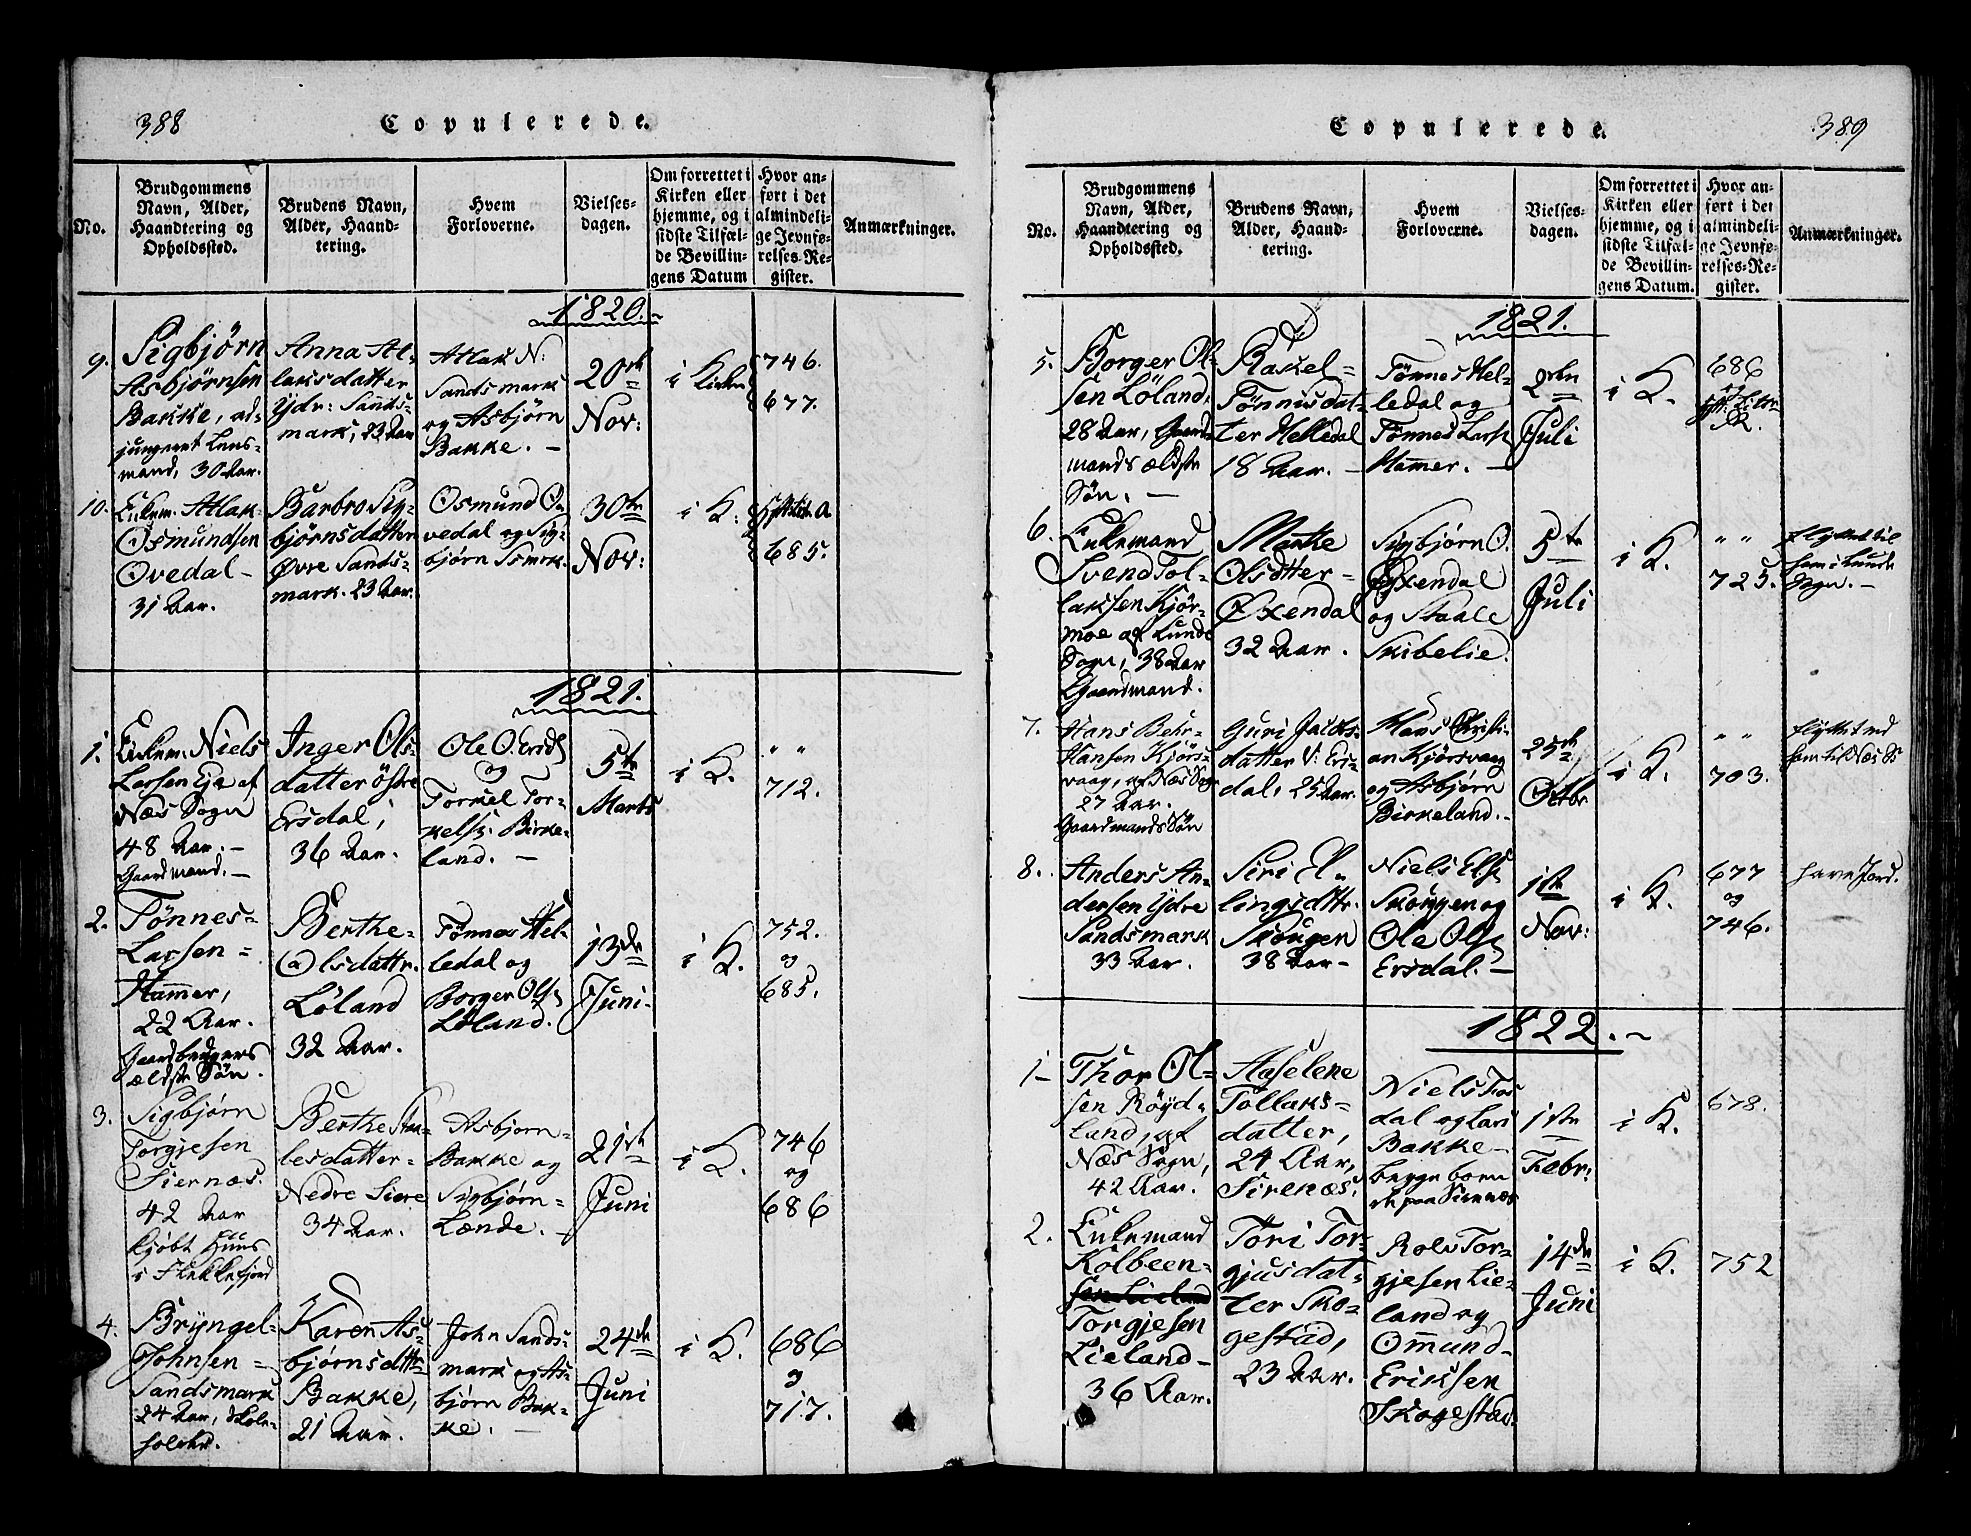 388
Copulerede.
No.
Brudgommens
Navn, Alder,
Haandtering og
Opholdssted.
Brudens Navn,
Alder, Haand-
tering.
Hvem
Forloverne.
Vielses-
dagen.
Om forrettet i
Kirken eller
hjemme, og i
sidste Tilfæl-
de Bevillin-
gens Datum
Hvor an-
ført i det
almindeli-
ge Jevnfø-
relses-Re-
gister.
Anmærkninger.
1820.
9.
Sigbjørn
Asbjørnsen
Bakke, ad-
jungeret Lens-
mand, 30 Aar.
Anna At-
laksdatter
Ydr: Sands-
mark, 23 Aar
Atlak N:
Sandsmark
og Asbjørn
Bakke. —
20de
Nov:
i Kirken
746.
677.
10.
Enkem. Atlak
Osmundsen
Ovedal –
31 Aar.
Barbro Sig-
bjørnsdatter
Øvre Sands-
mark. 23 Aar.
Osmund O-
vedal og Sig-
bjørn Smrk.
30te
Nov:
i K:
685.
1821.
1.
Enkem: Niels
Larsen Eje af
Næs Sogn
48 Aar. –
Gaardmand. –
Inger Ols-
datter östre
Ersdal,
36 Aar.
Ole O. Ersd
og
Torkel Tor-
kels: Birke-
land. —
5te
Marts
i K.
" "
712.
2.
Tönnes
Larsen =
Ham̄er,
22 Aar.
Gaardbrugers
ældste Søn.
Berthe
Olsdattr.
Löland
32 Aar.
Tønnes Hel-
ledal og
Borger Ols
Löland.
13de
Juni.
i K.
752.
og
685.
3.
Sigbjørn
Torgjesen
Siernæs.
42 Aar
kjöbt Huus
i Flekkefjord
Berthe Staa-
lesdatter
Nedre Siere
34 Aar.
Asbjørn
Bakke og
Sigbjørn
Lænde. –
21de
Juni
i K.
746
og
686
4.
Bryngel
Johnsen =
Sandsmark
24 Aar, Skole-
holder.
Karen As-
bjørnsdattr
Bakke,
21 Aar.
John Sands-
mark og As-
björn Bak-
ke. —
24de
Juni
i K.
686
og
717.
389
Copulerede.
No.
Brudgommens
Navn, Alder,
Haandtering og
Opholdssted.
Brudens Navn,
Alder, Haand-
tering.
Hvem
Forloverne.
Vielses-
dagen.
Om forrettet i
Kirken eller
hjemme, og i
sidste Tilfæl-
de Bevillin-
gens Datum.
Hvor an-
ført i det
almindeli-
ge Jevnfø-
relses-Re-
gister.
Anmærkninger.
1821.
5.
Borger Ol-
sen Löland,
28 Aar, Gaard-
mands ældste
Søn. —
Rakel
Tönnisdat-
ter Helledal
18 Aar. –
Tönnes Hel-
ledal og
Tönnes Lars
Ham̄er. –
2den
Juli
i K.
686
og
6.
Enkemand
Svend Tol-
laksen Kjör-
moe af Lunds
Sogn, 38 Aar
Gaardmand.
Marthe
Olsdtter
Øxendal
32 Aar.
Sigbjørn O.
Øyxendal
og Staale
Skibelie.
5te
Juli
i K.
" "
725.
flyttet til
ham i Lunde
Sogn. –
7.
Hans Behr-
Hansen Kjörs-
vaag, af Næs Sogn
27 Aar.
Gaardmands Søn
Guri Jacobs-
datter V: Ers-
dal, 25 Aar.
Hans Christi-
an Kjörsvaag
og Asbjørn
Birkeland. –
25de
Octbr
i K.
" "
703.
flyttet ned
ham til Næs S
8.
Anders An-
dersen Ydre
Sandsmark
33 Aar.
Siri El-
lingsdttr.
Skougen
38 Aar –
Niels Els
Skougen og
Ole Ols
Ersdal. –
1ste
Nov:
i K.
677
og
746.
have Jord.
1822.
1
Thor Ol-
sen Röyd-
land, af
Næs Sogn,
42 Aar.
Aaselene
Tollaks-
datter,
24 Aar,
Sirenæs.
Niels Fos
dal og Lars
Bakke
begge boen
de paa Sirenæs
1ste
Febr:
i K.
678.
2.
Enkemand
Kolbeen
Torgjesen
Lieland –
36 Aar.
Töri Tor-
gjusdat-
ter Sko-
gestad,
23 Aar.
Rolv Tor-
gjesen Lie-
land og
Om̄und
Eriksen
Skogestad.
14de
Juni
i K.
752